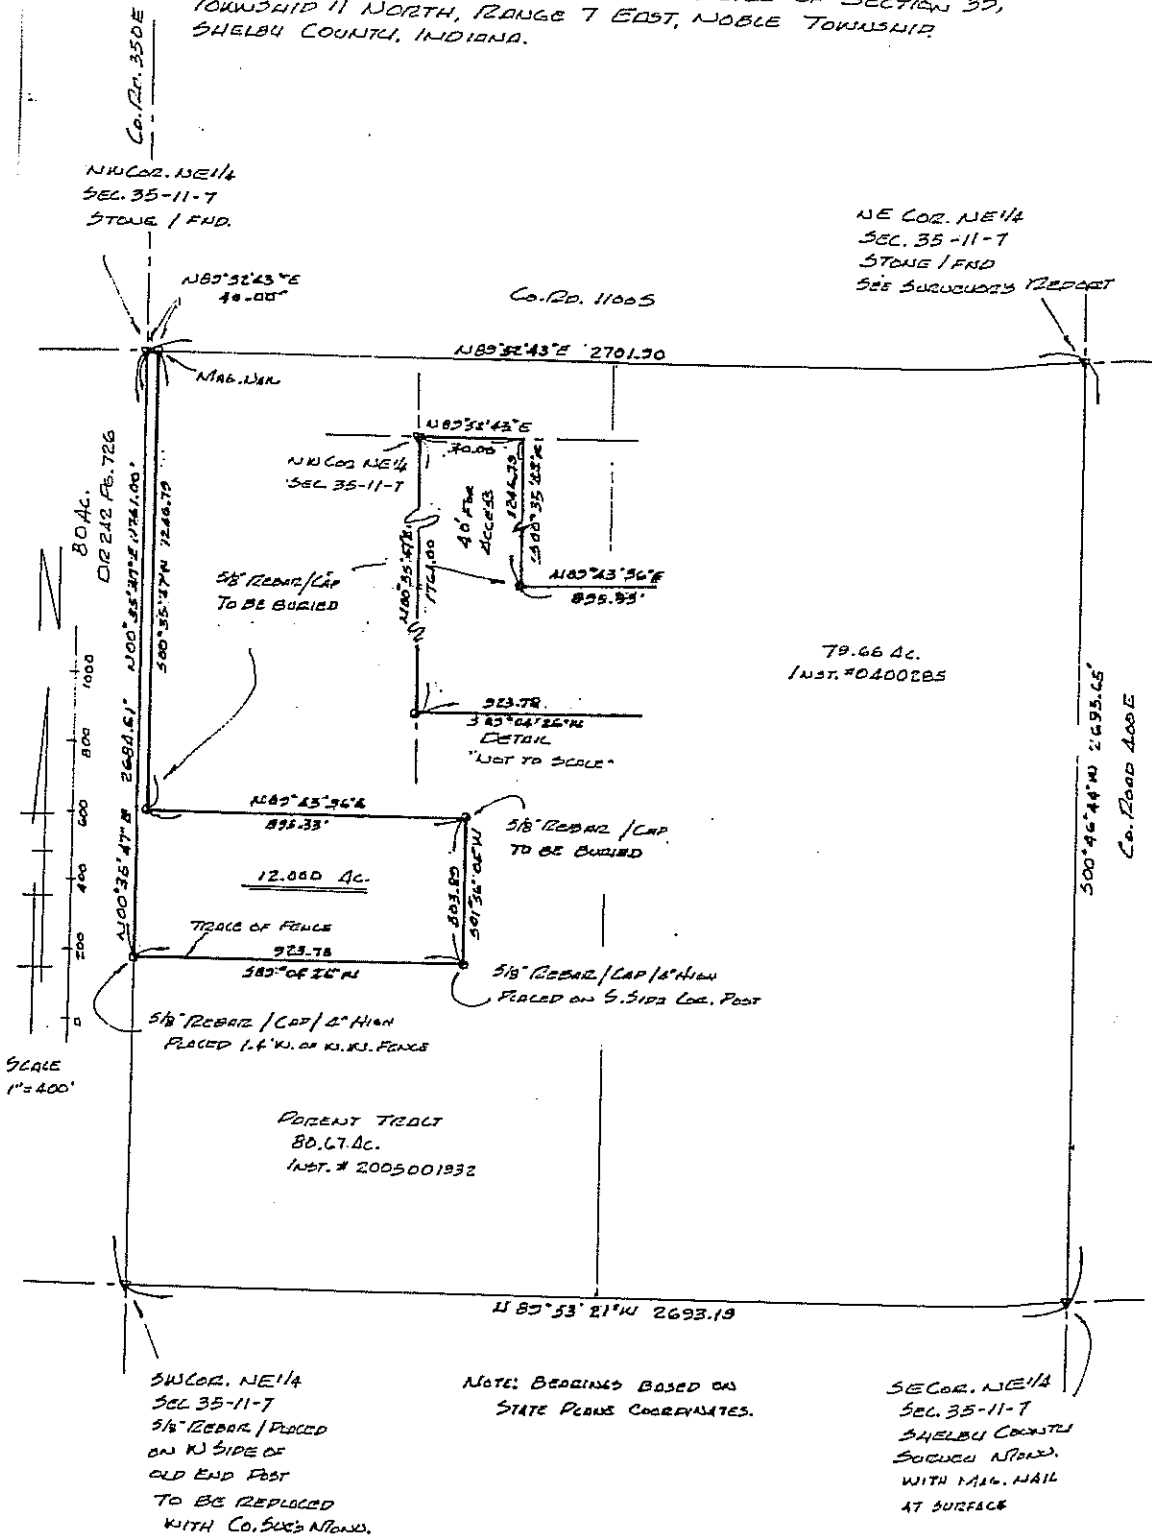 TOWNSHIP 11 NORTH, RANGE 7 EAST, NOBLE TOWNSHIP
SHELBY COUNTY, INDIANA.
Co. Rd. 350E
NW COR. NE 1/4
SEC. 35-11-7
STONE / FND.
NE COR. NE 1/4
SEC. 35-11-7
STONE / FND
SEE SURVEYORS REPORT
N89°52'43"E
40.00'
CO. RD. 1100S
N89°52'43"E 2701.90
MAG. NAIL
N89°52'43"E
40.00
NW COR NE 1/4
SEC 35-11-7
40' FOR
ACCESS
1246.79
N89°43'56"E
895.33'
1761.00
80 AC.
DR 242 PG. 726
N00°35'47"E 1761.00'
1246.79
5/8" REBAR/CAP
TO BE BURIED
79.66 AC.
INST. #0400285
923.78
DETAIL
"NOT TO SCALE"
S00°46'44"W 2693.65'
CO. ROAD 400E
N00°35'47"E 2684.61'
N89°43'56"E
895.33'
5/8" REBAR / CAP
TO BE BURIED
12.000 AC.
TRACE OF FENCE
923.78
5/8" REBAR / CAP / 4" HIGH
PLACED ON S. SIDE COR. POST
5/8" REBAR / CAP / 4" HIGH
PLACED 1.4' W. OF W.W. FENCE
1000
800
600
400
200
0
SCALE
1"=400'
PARENT TRACT
80.67 AC.
INST. # 2005001932
N 89°53'21"W 2693.19
SW COR. NE 1/4
SEC 35-11-7
5/8" REBAR / PLACED
ON W SIDE OF
OLD END POST
TO BE REPLACED
WITH CO. SUR'S MONU.
NOTE: BEARINGS BASED ON
STATE PLANE COORDINATES.
SE COR. NE 1/4
SEC. 35-11-7
SHELBY COUNTY
SURVEY MONU.
WITH MAG. NAIL
AT SURFACE